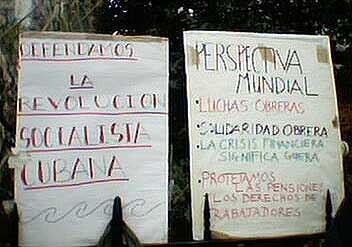 DEFENDAMOS
LA
REVOLUCION
SOCIALISTA
CUBANA
PERSPECTIVA
MUNDIAL
• LUCHAS OBRERAS
• SOLIDARIDAD OBRERA
• LA CRISIS FINANCIERA
SIGNIFICA GUERA
• PROTEJAMOS
LAS PENSIONES
LOS DERECHOS DE
TRABAJADORES